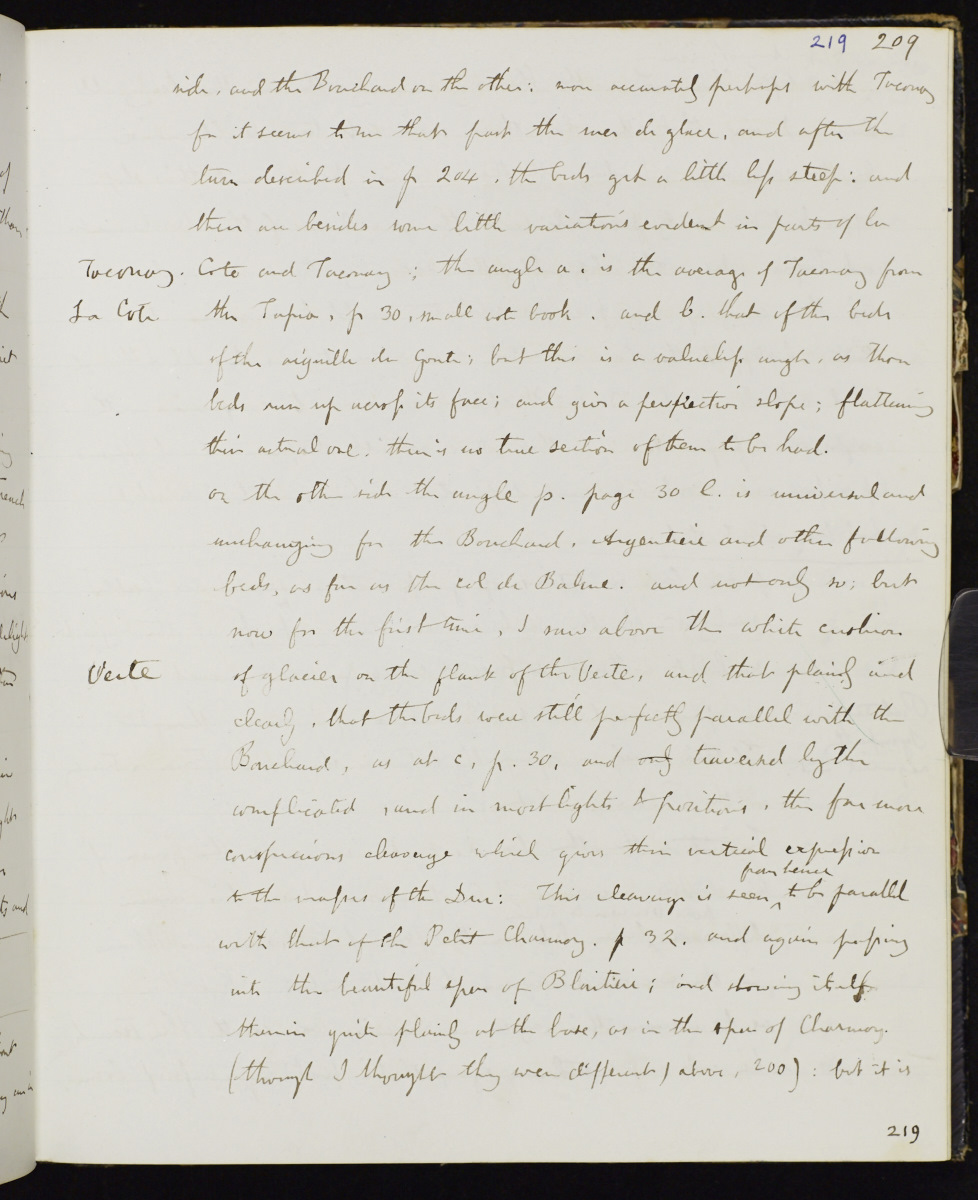 219 209
side, and the Bouchard on the other: more accurately perhaps with Taconay
for it seems to me that past the mer de glace, and after the
turn described in p 204, the beds get a little less steep: and
there are besides some little variations evident in parts of la
Taconay. Cote and Taconay; the angle a. is the average of Taconay from
La Cote the Tapia, p 30, small note book. and b. that of the beds
of the aiguille du Goute; but this is a valueless angle, as those
beds run up across its face; and give a perspective slope; flattening
their actual one. there is no true section of them to be had.
on the other side the angle p. page 30 l. is universal and
unchanging for the Bouchard, Argentiere and other following
beds, as far as the col de Balme. and not only so; but
now for the first time, I saw above the white cushion
Verte of glacier on the flank of the Verte, and that plainly and
clearly, that the beds were still perfectly parallel with the
Bouchard, as at c, p. 30, and only traversed by the
complicated, and in most lights & positions, the far more
conspicuous cleavage which gives their vertical expression
from hence
to the masses of the Dru: This cleavage is seen to be parallel
with that of the Petit Charmoz. p 32. and again passing
into the beautiful spur of Blaitiere; and showing itself
therein quite plainly at the base, as in the spur of Charmoz.
(though I thought they were different) above, 200): but it is
219